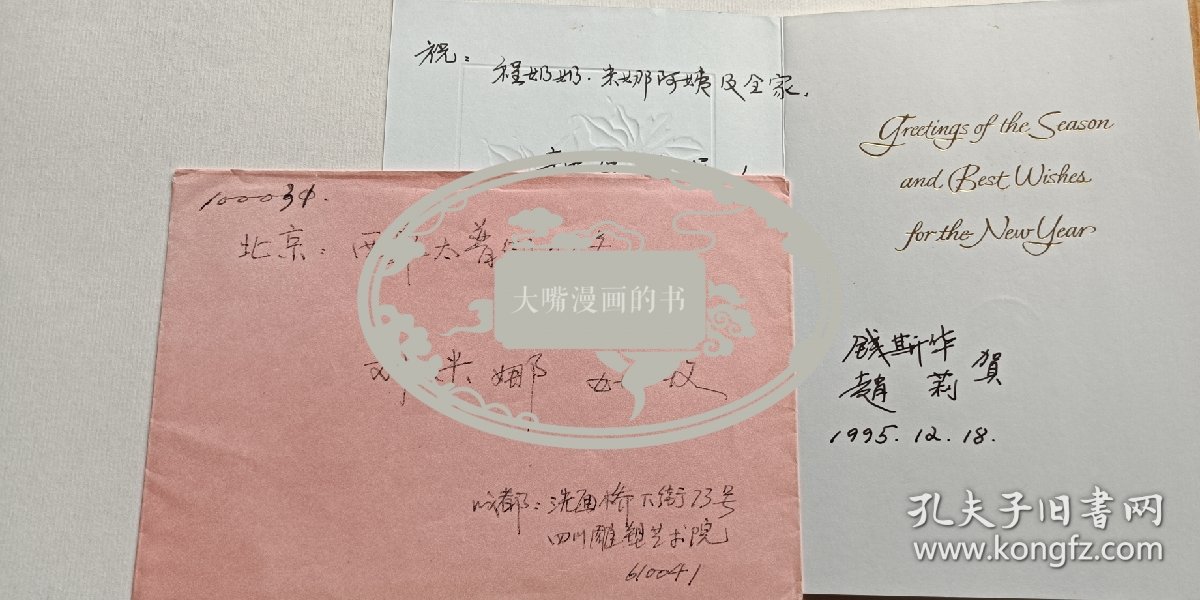 祝:
程奶奶、米娜阿姨及全家,
Greetings of the Season
and Best Wishes
for the New Year
钱斯华
赵莉 贺
1995.12.18.
100034.
北京:西
太普
大嘴漫画的书
米娜
收
成都:洗面桥下街73号
四川雕塑艺术院
610041
孔夫子旧书网
www.kongfz.com